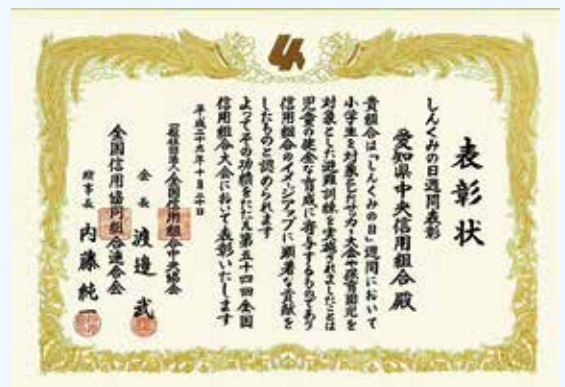 表彰状
しんくみの日週間表彰
愛知県中央信用組合殿
貴組合は「しんくみの日」週間において
小学生を対象としたサッカー大会や保育園児を
対象とした避難訓練を実施されましたことは
児童の健全な育成に寄与するものであり
信用組合のイメージアップに顕著な貢献を
したものと認められます
よってその功績をたたえ第五十四回全国
信用組合大会において表彰いたします
平成二十九年十月二十日
一般社団法人全国信用組合中央協会
会長 渡邉武
全国信用協同組合連合会
理事長 内藤純一